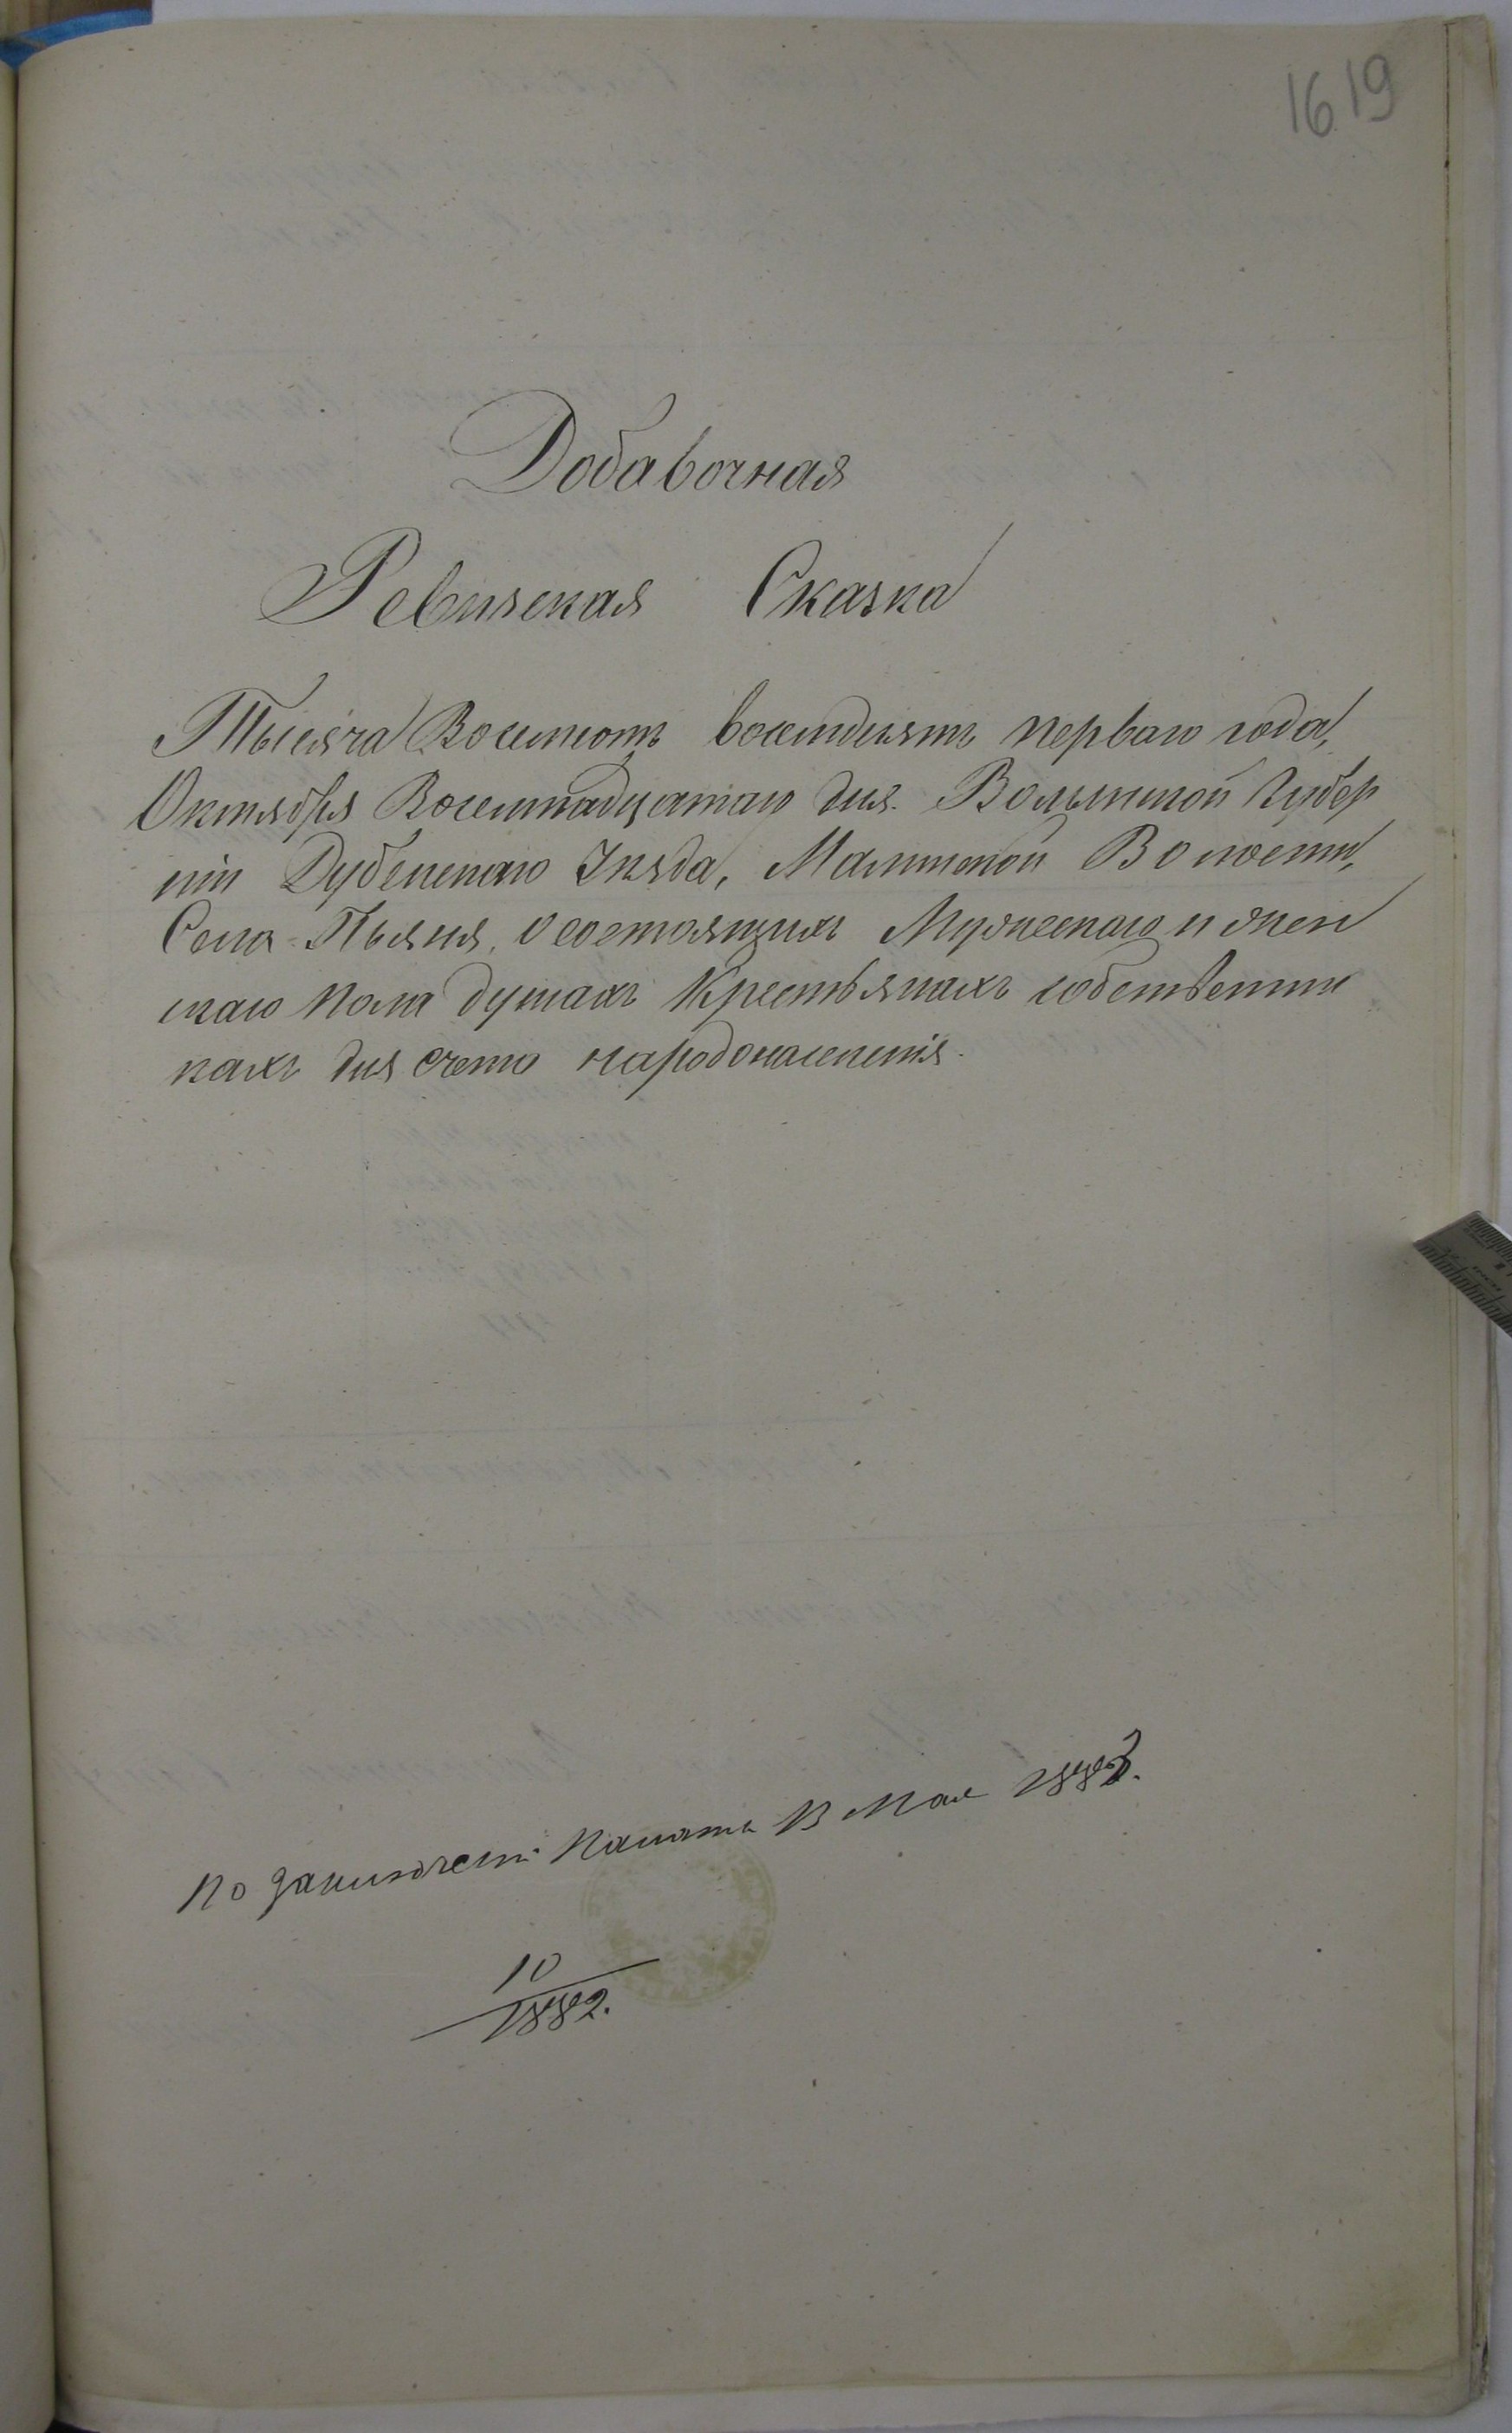 16 19
Добавочная
Ревизская Сказка
Тысяча Восемсотъ восемдисятъ перваго года,
Октября Восемнадцатаго дня. Волынской Губер
ніи Дубенскаго Уезда, Малинской Волости,
Села Пьяня, о состоящихъ Мужескаго и жен
скаго пола душахъ Крестьянахъ собственни
кахъ для счета народонаселенія.
По заключени Палаты 13 Мая 1883.
10
1882.